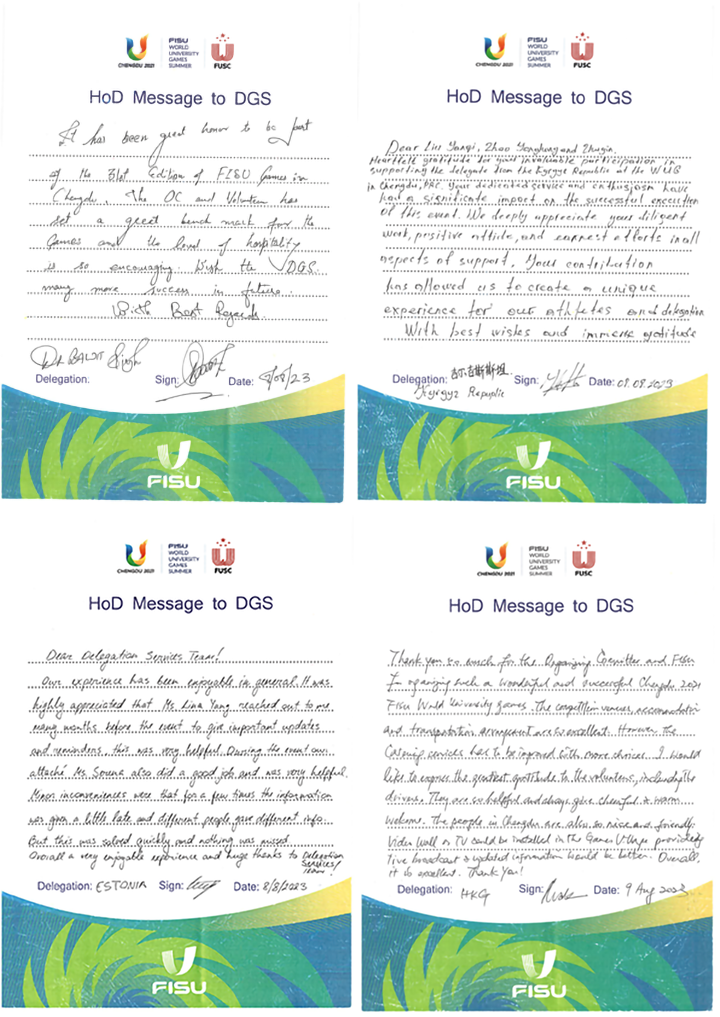 CHENGDU 2021
FISU
WORLD
UNIVERSITY
GAMES
SUMMER
FUSC
HoD Message to DGS
It has been great honor to be part
of the 31st Edition of FISU Games in
Chengdu. The OC and Volunteer has
set a great bench mark for the
Games and the level of hospitality
is so encouraging. Wish the DGS
many more success in future.
With Best Regards
Dr. BALJIT Singh
Delegation:
Sign:
Date: 8/08/23
FISU
CHENGDU 2021
FISU
WORLD
UNIVERSITY
GAMES
SUMMER
FUSC
HoD Message to DGS
Dear Liu Yanqi, Zhao Yonghong and
Heartfelt gratitude for your invaluable participation in
supporting the delegate from the Kyrgyz Republic at the WUG
in Chengdu, PRC. Your dedicated service and enthusiasm have
had a significate import on the successful execution
of this event. We deeply appreciate your diligent
work, positive attide, and earnest efforts in all
aspects of support. Your contribution
has allowed us to create a unique
experience for our athletes and delegation
With best wishes and immense gratitude
Delegation: 吉尔吉斯斯坦
Kyrgyz Republic
Sign:
Date: 09.08.2023
FISU
CHENGDU 2021
FISU
WORLD
UNIVERSITY
GAMES
SUMMER
FUSC
HoD Message to DGS
Dear Delegation Services Team!
Our experience has been enjoyable in general. It was
highly appreciated that Ms. Lina Yang reached out to me
many months before the event to give important updates
and reminders, this was very helpful. During the event our
attaché Ms Serena also did a good job and was very helpful.
Minor inconveniences were that for a few times the information
was given a little late and different people gave different info.
But this was solved quickly and nothing was missed.
Overall a very enjoyable experience and huge thanks to Delegation
Services
team!
Delegation: ESTONIA
Sign:
Date: 8/8/2023
FISU
CHENGDU 2021
FISU
WORLD
UNIVERSITY
GAMES
SUMMER
FUSC
HoD Message to DGS
Thank you so much for the Organizing Comittee and Fisu
In oganizing such a wonderful and successful Chengdu 2021
FISU World University games. The competition venues, accomodation
and transportation arrangement are so excellent. However the
services has to be improved with more choices. I would
like to express the greatest gratitude to the volunteers, including the
drivers. They are so helpful and always give cheerful & warm
welcome. The people in Chengdu are also so nice and friendly.
Video Wall or TV could be installed in the Games Village providing
live broadcast & updated information would be better. Overall,
it is excellent. Thank You!
Delegation: HKG
Sign:
Date: 9 Aug 2023
FISU